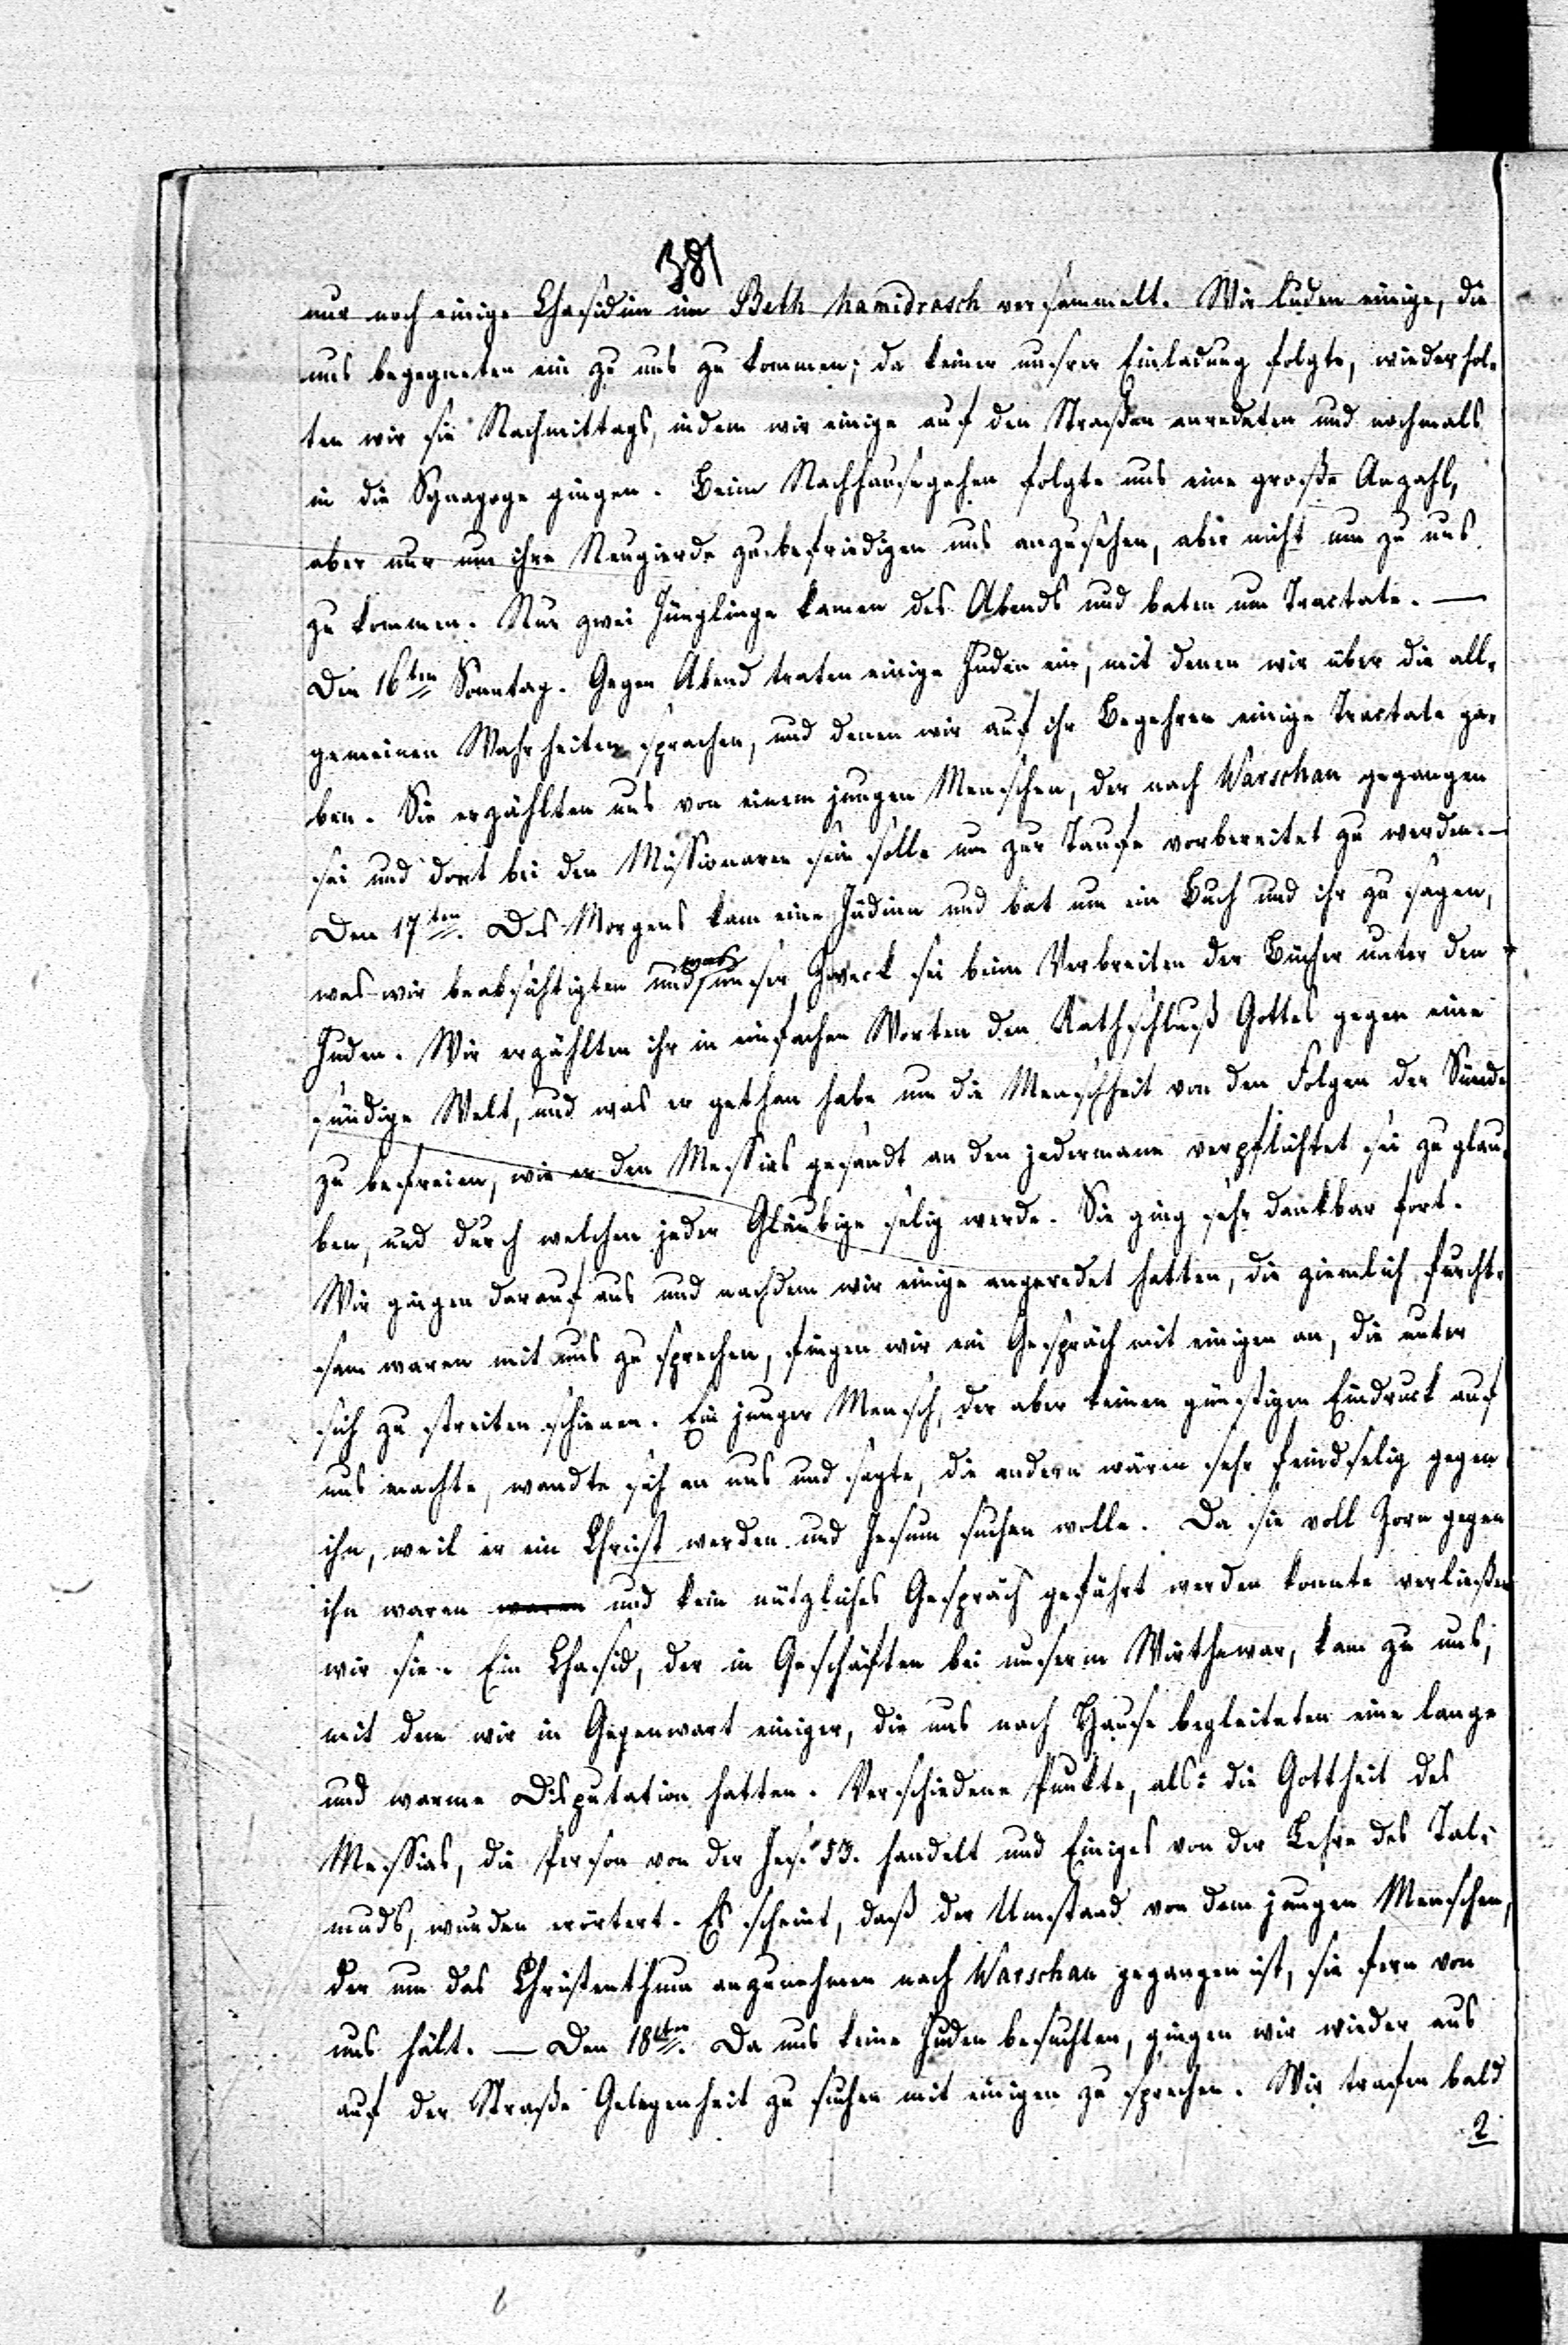 381
nur noch einige Chasidim im Beth hamidrasch versammelt. Wir luden einige, die
uns begegneten ein zu uns zu kommen; da keiner unsrer Einladung folgte, wiederhol-
ten wir sie Nachmittags, indem wir einige auf den Straßen anredeten und nochmals
in die Synagoge gingen. Beim Nachhausegehen folgte uns eine große Anzahl,
aber nur um ihre Neugierde zu befriedigen uns anzusehen, aber nicht um zu uns
zu kommen. Nur zwei Jünglinge kamen des Abends und baten um Tractate. —
Den 16ten Sonntag. Gegen Abend traten einige Juden ein, mit denen wir über die all-
gemeinen Wahrheiten sprachen, und denen wir auf ihr Begehren einige Tractate ga-
ben. Sie erzählten uns von einem jungen Menschen, der nach Warschau gegangen
sei und dort bei den Missionaren sein solle um zur Taufe vorbereitet zu werden. —
Den 17ten. Des Morgens kam eine Jüdinn und bat um ein Buch und ihr zu sagen,
was wir beabsichtigten und was unser Zweck sei beim Verbreiten der Bücher unter den
Juden. Wir erzählten ihr in einfachen Worten den Rathschluß Gottes gegen eine
sündige Welt, und was er gethan habe um die Menschheit von den Folgen der Sünde
zu befreien, wie er den Messias gesandt an den jedermann verpflichtet sei zu glau-
ben, und durch welchen jeder Gläubige selig werde. Sie ging sehr dankbar fort.
Wir gingen darauf aus und nachdem wir einige angeredet hatten, die ziemlich furcht-
sam waren mit uns zu sprechen, fingen wir ein Gespräch mit einigen an, die unter
sich zu streiten schienen. Ein junger Mensch, der aber keinen günstigen Eindruck auf
uns machte, wandte sich an uns und sagte, die andern wären sehr feindselig gegen
ihn, weil er ein Christ werden und Jesum suchen wolle. Da sie voll Zorn gegen
ihn waren waren und kein nützliches Gespräch geführt werden konnte verließen
wir sie. Ein Chasid, der in Geschäften bei unserm Wirthe war, kam zu uns,
mit dem wir in Gegenwart einiger, die uns nach Hause begleiteten eine lange
und warme Disputation hatten. Verschiedene Punkte, als: die Gottheit des
Messias, die Person von der Jes. 53. handelt und Einiges von der Lehre des Tal-
muds, wurden erörtert. Es scheint, daß der Umstand von dem jungen Menschen,
der um das Christenthum anzunehmen nach Warschau gegangen ist, sie fern von
uns hält. — Den 18ten. Da uns keine Juden besuchten, gingen wir wieder aus
auf der Straße Gelegenheit zu suchen mit einigen zu sprechen. Wir trafen bald
2